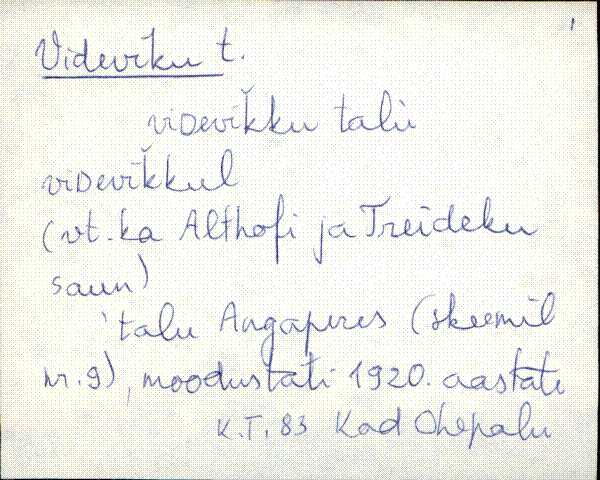 1
Videviku t.
viDevikku talu
viDevikkul
(vt. ka Althofi ja Treideku
saun)
'talu Angaperes (skeemil
nr. 9), moodustati 1920. aastate
K.T. 83 Kad Ohepalu